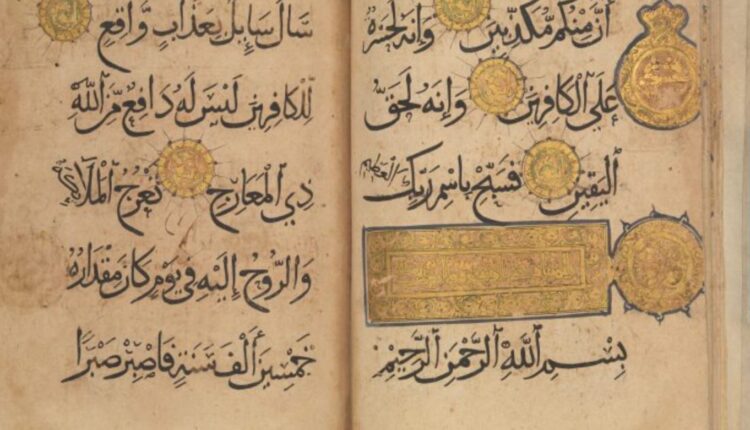 أَنَّ مِنْكُم مُّكَذِّبِينَ وَإِنَّهُ لَحَسْرَةٌ
عَلَى الْكَافِرِينَ وَإِنَّهُ لَحَقُّ
الْيَقِينِ فَسَبِّحْ بِاسْمِ رَبِّكَ الْعَظِيمِ
بِسْمِ اللَّهِ الرَّحْمَنِ الرَّحِيمِ
سَأَلَ سَايِلٌ بِعَذَابٍ وَّاقِعٍ
لِّلْكَافِرِينَ لَيْسَ لَهُ دَافِعٌ مِّنَ اللَّهِ
ذِي الْمَعَارِجِ تَعْرُجُ الْمَلَائِكَةُ
وَالرُّوحُ إِلَيْهِ فِي يَوْمٍ كَانَ مِقْدَارُهُ
خَمْسِينَ أَلْفَ سَنَةٍ فَاصْبِرْ صَبْرًا